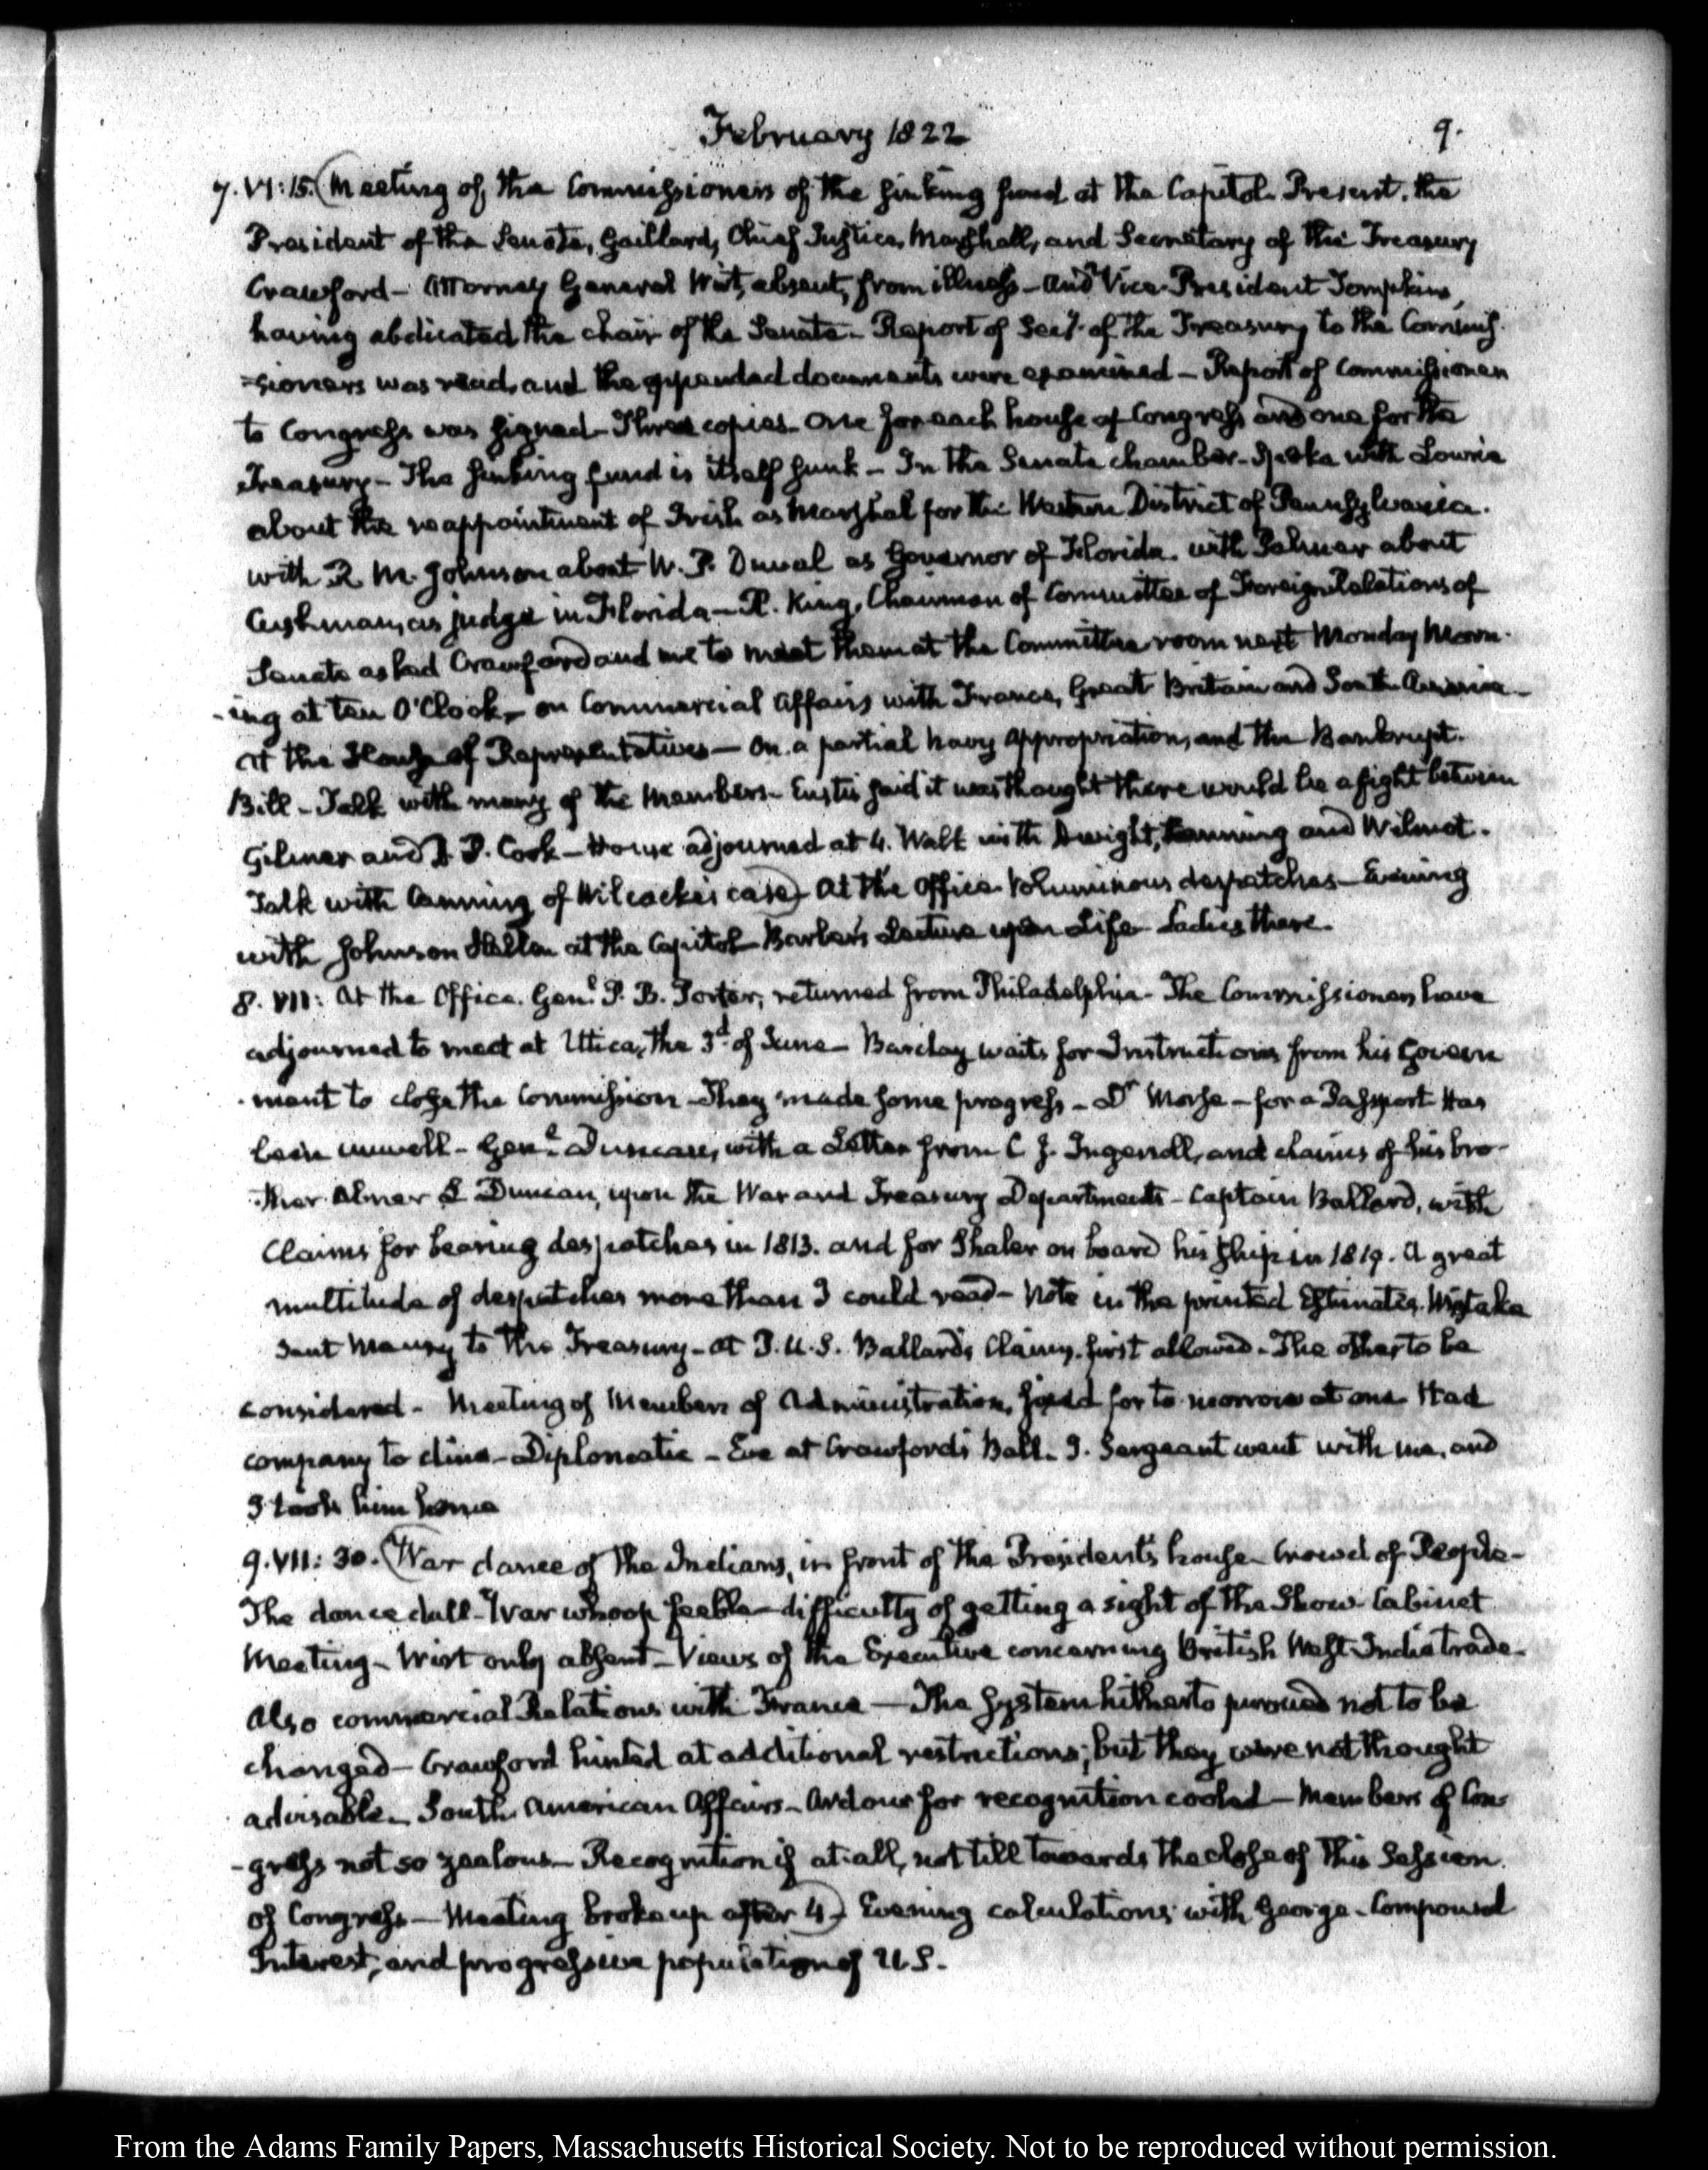 February 1822
9.
7. VI:15. (Meeting of the Commissioners of the sinking fund at the Capitol. Present, the
President of the Senate, Gaillard, Chief Justice, Marshall, and Secretary of the Treasury
Crawford— Attorney General Wirt, absent, from illness— and Vice-President Tompkins,
having abdicated the chair of the Senate— Report of Secy. of the Treasury to the Commis-
-sioners was read, and the appended documents were examined— Report of Commissioners
to Congress was signed— Three copies— One for each house of Congress and one for the
Treasury— The sinking fund is itself sunk— In the Senate chamber— Spoke with Lowrie
about the reappointment of Irish as Marshal for the Western District of Pennsylvania.
with R. M. Johnson about W. P. Duval as Governor of Florida. with Palmer about
Cushman, as judge in Florida— R. King, Chairman of Committee of Foreign Relations of
Senate asked Crawford and me to meet them at the Committee room next Monday Morn-
-ing at ten O'Clock— on Commercial Affairs with France, Great Britain and South America—
At the House of Representatives— On a partial navy appropriation, and the Bankrupt.
Bill— Talk with many of the Members— Eustis said it was thought there would be a fight between
Gilmer and D. P. Cook— House adjourned at 4. Walk with Dwight, Canning and Wilmot.
Talk with Canning of Wilcocks's case) At the Office. Voluminous despatches— Evening
with Johnson Hellen at the Capitol— Barber's Lecture upon Life— Ladies there.
8. VII: At the Office. Genl. P. B. Porter, returned from Philadelphia— The Commissioners have
adjourned to meet at Utica, the 3d. of June— Barclay waits for Instructions from his Govern
-ment to close the Commission— They made some progress— Dr Morse— for a Passport Has
been unwell— Genl. Duncan, with a Letter from C J. Ingersoll, and claims of his bro-
-ther Abner L Duncan, upon the War and Treasury Departments— Captain Ballard, with
Claims for bearing despatches in 1813. and for Shaler on board his ship in 1819. A great
multitude of despatches more than I could read— Note in the printed Estimates. Mistake
Sent Maury to the Treasury— at P. U. S. Ballard's Claims. first allowed— The other to be
considered— Meeting of Members of Administration, fixed for to-morrow at one Had
company to dine— Diplomatic— Eve at Crawford's Ball— J. Sergeant went with me, and
I took him home
9. VII:30. (War dance of the Indians, in front of the President's house— Crowd of People—
The dance dull— War whoop feeble— difficulty of getting a sight of the Show— Cabinet
Meeting— Wirt only absent— Views of the Executive concerning British West-India trade—
Also commercial Relations with France— The System hitherto pursued not to be
changed— Crawford hinted at additional restrictions; but they were not thought
advisable— South American Affairs— Ardour for recognition cooled— Members of Con
-gress not so zealous— Recognition if at all, not till towards the close of this Session.
of Congress— Meeting broke up after 4) Evening calculations with George— Compound
Interest, and progressive population of U.S.
From the Adams Family Papers, Massachusetts Historical Society. Not to be reproduced without permission.